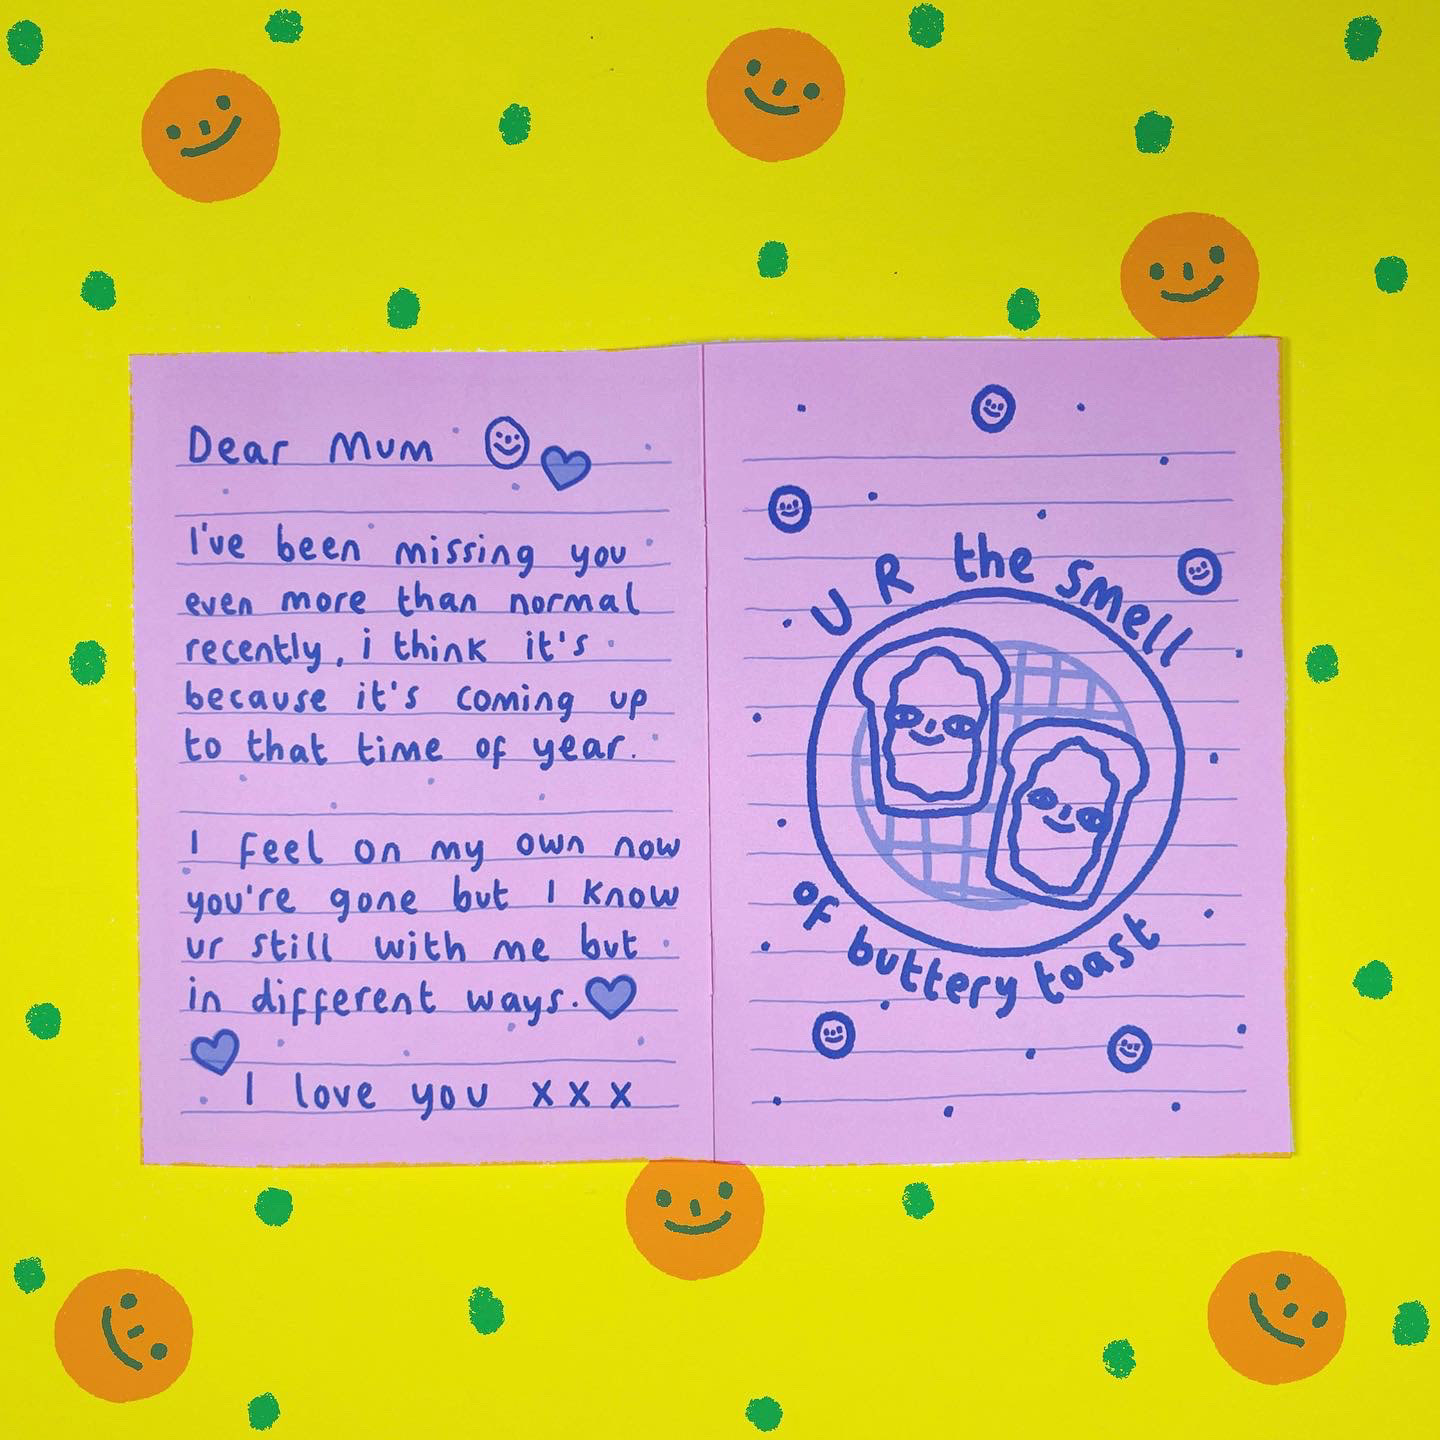 Dear Mum
I've been missing you
even more than normal
recently, i think it's
because it's coming up
to that time of year.
I feel on my own now
you're gone but I know
ur still with me but
in different ways.
I love you xxx
U R the smell
of buttery toast